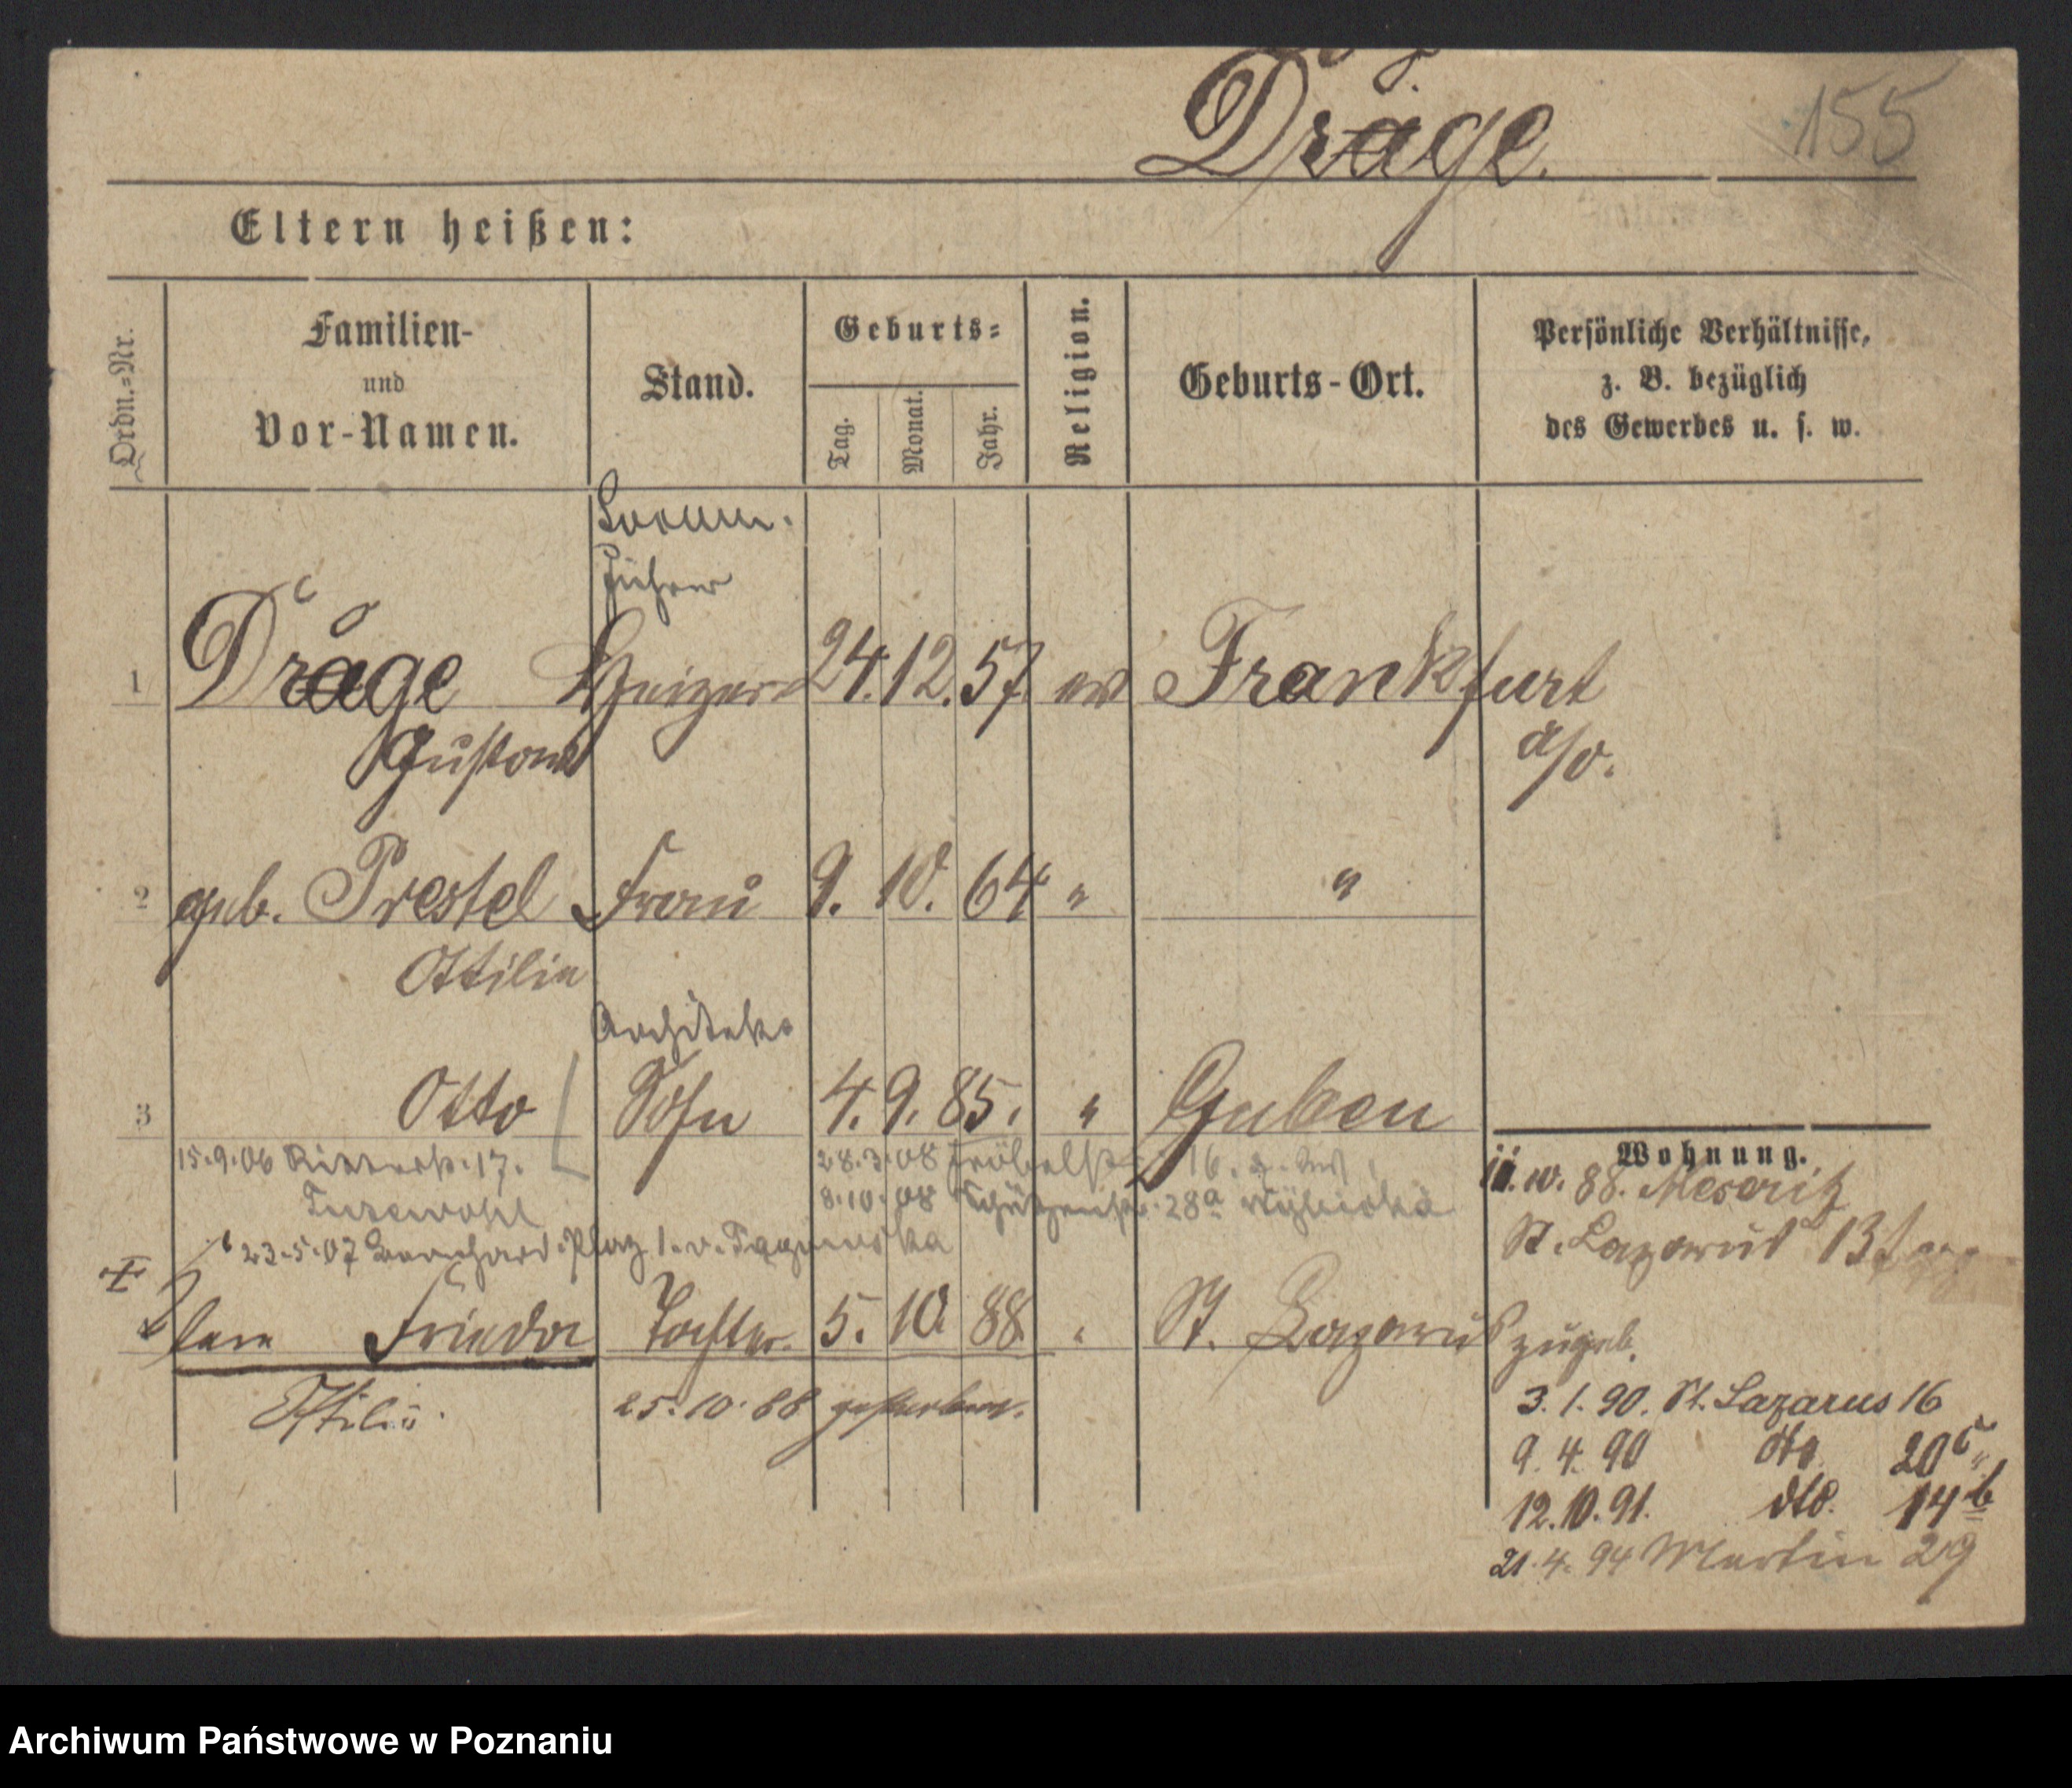 Dräge.
155
Eltern heißen:
Ordn.-Nr.
Familien-
und
Vor-Namen.
Stand.
Geburts-
Tag.
Monat.
Jahr.
Religion.
Geburts-Ort.
Persönliche Verhältnisse,
z. B. bezüglich
des Gewerbes u. s. w.
führer
1 Dräge Heizer 24. 12. 57 ev Frankfurt
Gustav a/o.
2 geb. Prestel Frau 9. 10. 64 " "
Ottilie
Architekt
3 Otto Sohn 4. 9. 85. " Guben
Wohnung.
15.9.06 Ritterstr. 17. 28.3.08 Fröbelstr. 16.
88. Meseritz
8.10.08 Schützenstr. 28a
St. Lazarus 13
23.5.07 Bernhard. Platz 1.
Frieda Tochter. 5. 10. 88. " St. Lazarus
zugeb.
Ottilie 25.10.88 gestorben.
3. 1. 90. St. Lazarus 16
9. 4. 90 dto. 20c
12. 10. 91. dto. 14b
21. 4. 94 Martin 29
Archiwum Państwowe w Poznaniu